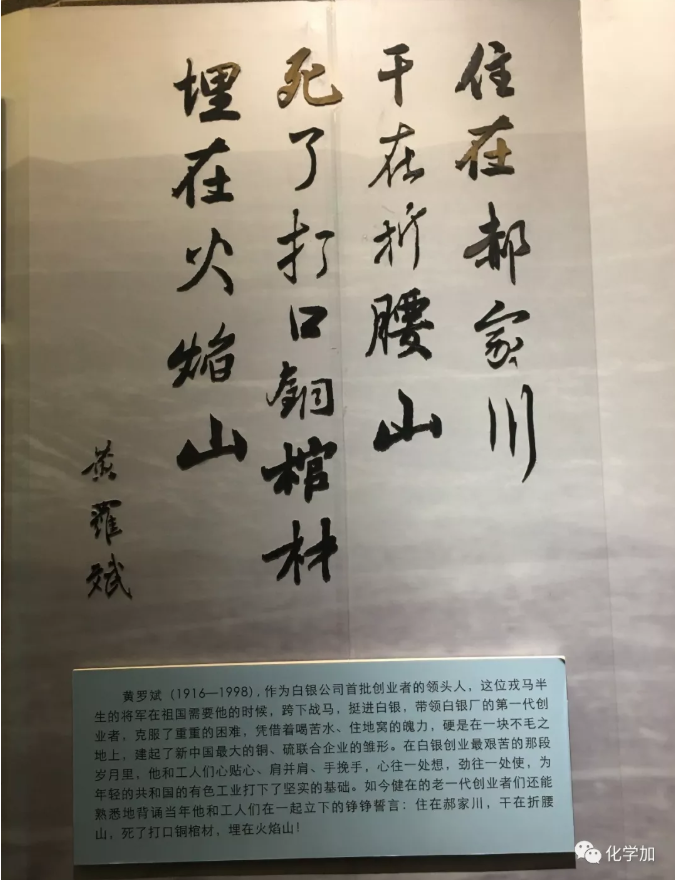 住在郝家川
干在折腰山
死了打口铜棺材
埋在火焰山
黄罗斌
黄罗斌（1916—1998），作为白银公司首批创业者的领头人，这位戎马半
生的将军在祖国需要他的时候，跨下战马，挺进白银，带领白银厂的第一代创
业者，克服了重重的困难，凭借着喝苦水、住地窝的魄力，硬是在一块不毛之
地上，建起了新中国最大的铜、硫联合企业的雏形。在白银创业最艰苦的那段
岁月里，他和工人们心贴心、肩并肩、手挽手，心往一处想，劲往一处使，为
年轻的共和国的有色工业打下了坚实的基础。如今健在的老一代创业者们还能
熟悉地背诵当年他和工人们在一起立下的铮铮誓言：住在郝家川，干在折腰
山，死了打口铜棺材，埋在火焰山！
化学加